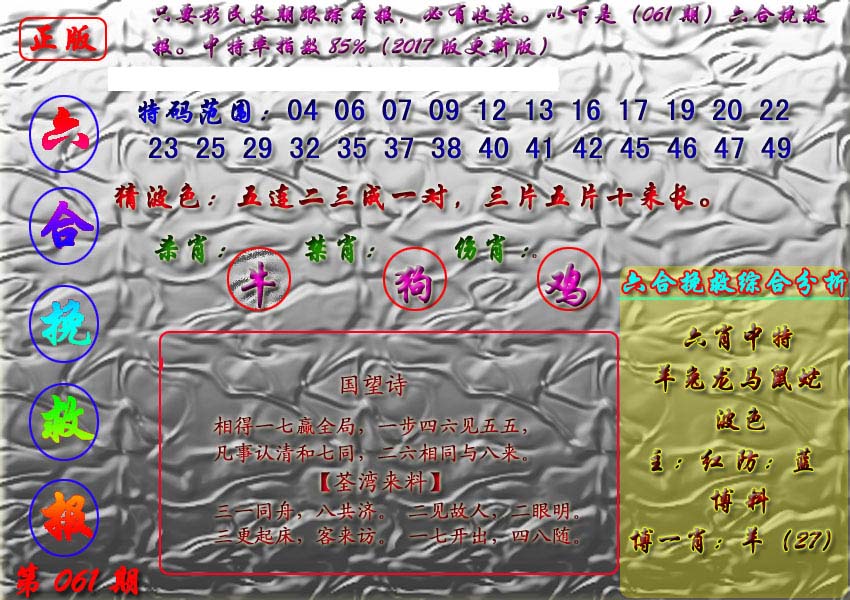 只要彩民长期跟踪本报，必有收获。以下是（061期）六合挽救
报。中特率指数85%（2017版更新版）
正版
六
合
挽
救
报
第061期
特码范围：04 06 07 09 12 13 16 17 19 20 22
23 25 29 32 35 37 38 40 41 42 45 46 47 49
猜波色：五连二三成一对，三片五片十来长。
杀肖：牛 禁肖：狗 伤肖：鸡。
国望诗
相得一七赢全局，一步四六见五五，
凡事认清和七同，二六相同与八来。
【荃湾来料】
三一同舟，八共济。 二见故人，二眼明。
三更起床，客来访。 一七开出，四八随。
六合挽救综合分析
六肖中特
羊兔龙马鼠蛇
波色
主：红防：蓝
博料
博一肖：羊（27）